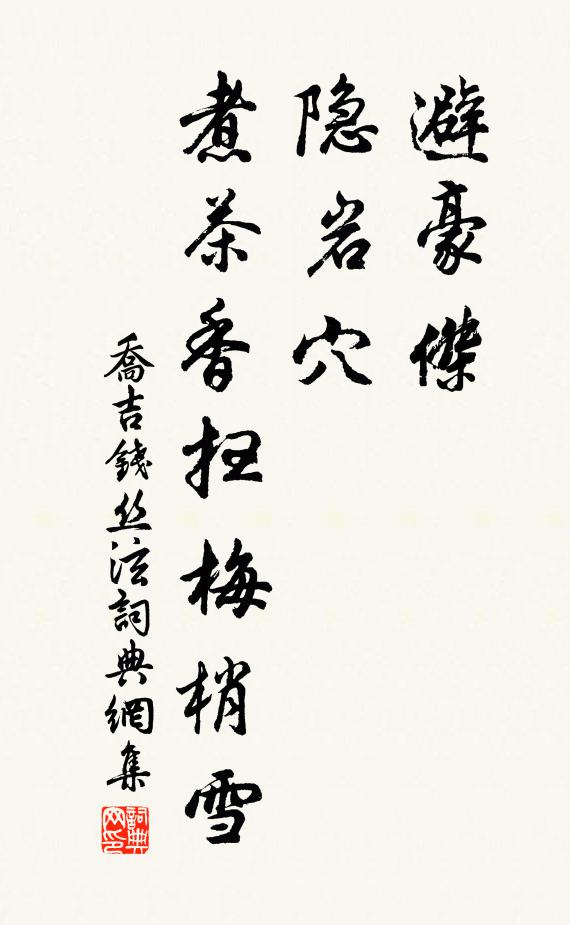 避豪傑
隐岩穴
煮茶香扫梅梢雪
喬吉錢丝泫詞典網集
詞典网印